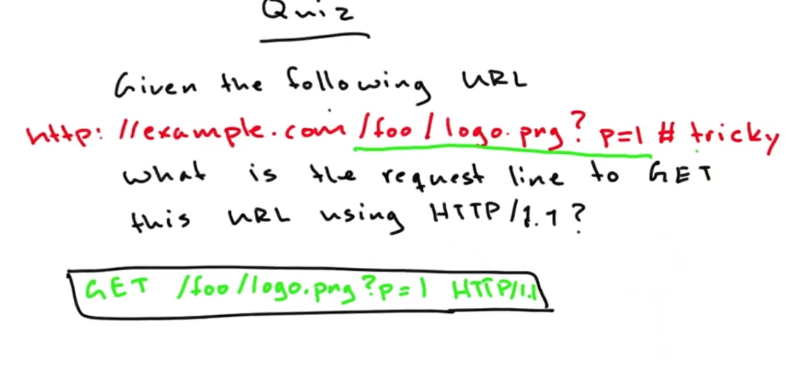 Quiz
Given the following URL
http://example.com/foo/logo.png?p=1#tricky
what is the request line to GET
this URL using HTTP/1.1?
GET /foo/logo.png?p=1 HTTP/1.1